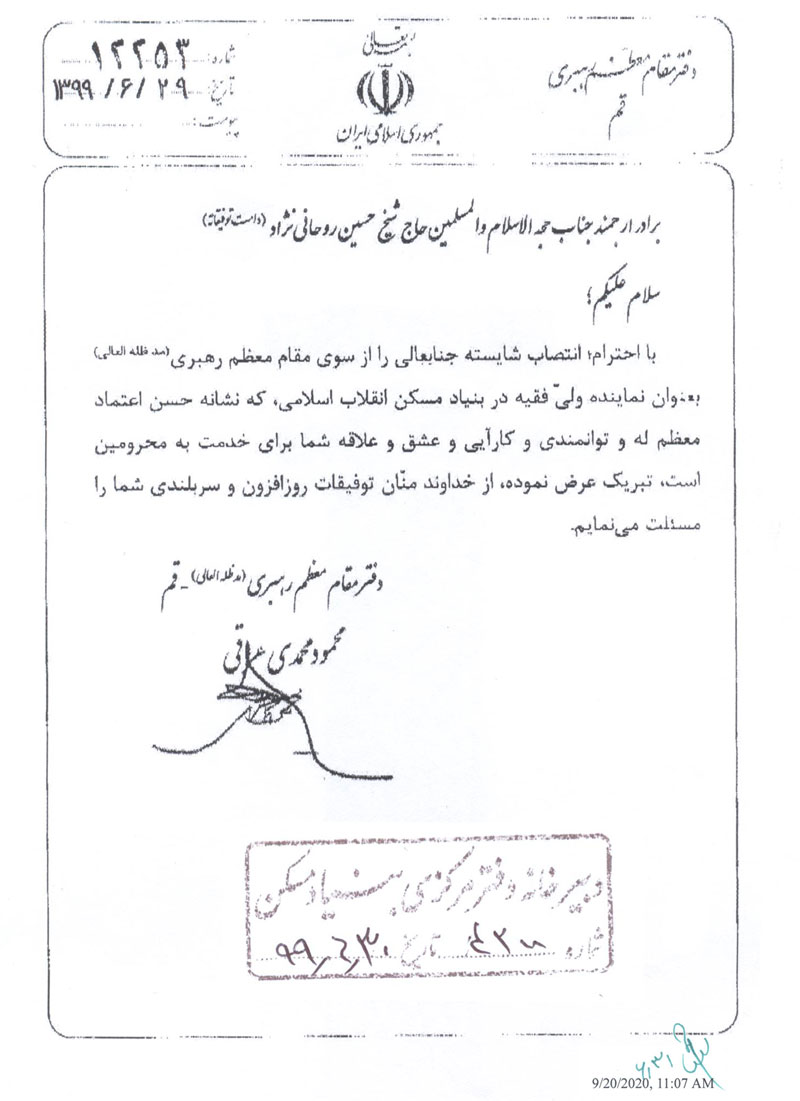 دفتر مقام معظم رهبری
قم
بسمه تعالی
جمهوری اسلامی ایران
شماره: ۱۲۲۵۳
تاریخ: ۱۳۹۹/۶/۲۹
پیوست:
برادر ارجمند جناب حجه الاسلام والمسلمین حاج شیخ حسین روحانی نژاد (دامت توفیقاته)
سلام علیکم؛
با احترام؛ انتصاب شایسته جنابعالی را از سوی مقام معظم رهبری (مد ظله العالی)
بعنوان نماینده ولیّ فقیه در بنیاد مسکن انقلاب اسلامی، که نشانه حسن اعتماد
معظم له و توانمندی و کارآیی و عشق و علاقه شما برای خدمت به محرومین
است، تبریک عرض نموده، از خداوند منّان توفیقات روزافزون و سربلندی شما را
مسئلت می‌نمایم.
دفتر مقام معظم رهبری (مد ظله العالی) - قم
محمود محمدی عراقی
دبیرخانه دفتر مرکزی بنیاد مسکن
شماره تاریخ ۹۹/۶/۳۰
۶/۳۱
9/20/2020, 11:07 AM